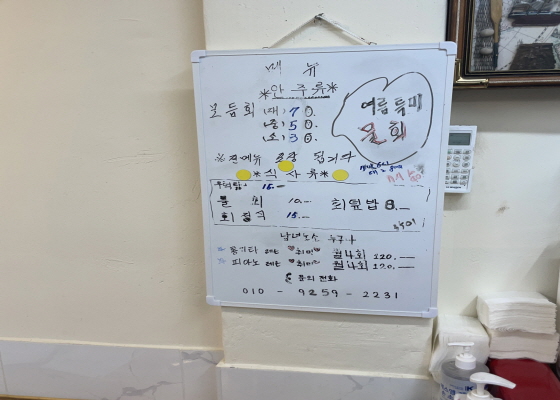 메 뉴
*안 주 류*
여름 특미
물 회
모 듬 회 (대) 70.
(중) 50.
(소) 30.
※ 전메뉴 포장 됩니다
*식 사 류*
15.—
물 회 10.— 회덮밥 8.—
회 정식 15.—
남녀노소 누구나
통기타 레슨 취미 월4회 120.—
피아노 레슨 취미 월4회 120.—
문의 전화
010 - 9259 - 2231